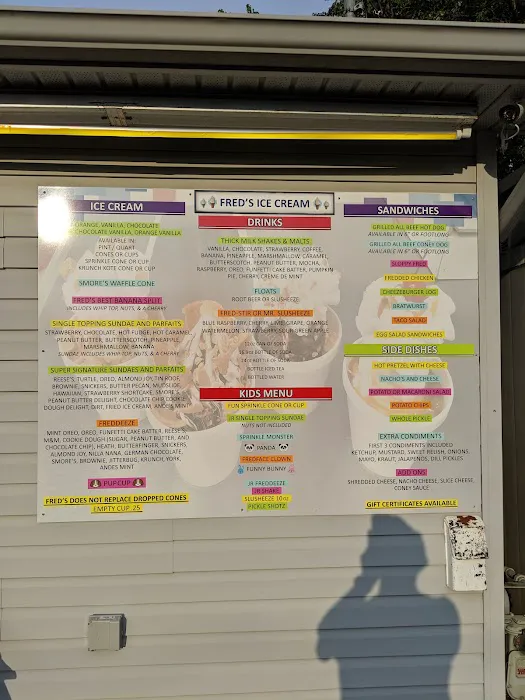 FRED'S ICE CREAM
ICE CREAM
ORANGE, VANILLA, CHOCOLATE
CHOCOLATE VANILLA, ORANGE VANILLA
AVAILABLE IN:
PINT / QUART
CONES OR CUPS
SPRINKLE CONE OR CUP
KRUNCH KOTE CONE OR CUP
SMORE'S WAFFLE CONE
FRED'S BEST BANANA SPLIT
INCLUDES WHIP TOP, NUTS, & A CHERRY
SINGLE TOPPING SUNDAE AND PARFAITS
STRAWBERRY, CHOCOLATE, HOT FUDGE, HOT CARAMEL,
PEANUT BUTTER, BUTTERSCOTCH, PINEAPPLE,
MARSHMALLOW, BANANA
SUNDAE INCLUDES WHIP TOP, NUTS, & A CHERRY
SUPER SIGNATURE SUNDAES AND PARFAITS
REESE'S, TURTLE, OREO, ALMOND JOY, TIN ROOF,
BROWNIE, SNICKERS, BUTTER PECAN, MUDSLIDE,
HAWAIIAN, STRAWBERRY SHORTCAKE, SMORE'S
PEANUT BUTTER DELIGHT, CHOCOLATE CHIP COOKIE
DOUGH DELIGHT, DIRT, FRIED ICE CREAM, ANDES MINT
FREDDEEZE
MINT OREO, OREO, FUNFETTI CAKE BATTER, REESE'S,
M&M, COOKIE DOUGH (SUGAR, PEANUT BUTTER, AND
CHOCOLATE CHIP), HEATH, BUTTERFINGER, SNICKERS,
ALMOND JOY, NILLA NANA, GERMAN CHOCOLATE,
SMORE'S, BROWNIE, JITTERBUG, KRUNCH, YORK,
ANDES MINT
PUP CUP
FRED'S DOES NOT REPLACE DROPPED CONES
EMPTY CUP .25
DRINKS
THICK MILK SHAKES & MALTS
VANILLA, CHOCOLATE, STRAWBERRY, COFFEE,
BANANA, PINEAPPLE, MARSHMALLOW, CARAMEL,
BUTTERSCOTCH, PEANUT BUTTER, MOCHA,
RASPBERRY, OREO, FUNFETTI CAKE BATTER, PUMPKIN
PIE, CHERRY, CREME DE MINT
FLOATS
ROOT BEER OR SLUSHEEZE
FRED STIR OR MR. SLUSHEEZE
BLUE RASPBERRY, CHERRY, LIME, GRAPE, ORANGE
WATERMELON, STRAWBERRY, SOUR GREEN APPLE
12oz CAN OF SODA
BOTTLE OF SODA
BOTTLE OF SODA
BOTTLE ICE TEA
BOTTLED WATER
KIDS MENU
FUN SPRINKLE CONE OR CUP
JR SINGLE TOPPING SUNDAE
NUTS NOT INCLUDED
SPRINKLE MONSTER
PANDA
FREDFACE CLOWN
FUNNY BUNNY
JR FREDDEEZE
JR SHAKE
SLUSHEEZE 10oz
PICKLE SHOTZ
SANDWICHES
GRILLED ALL BEEF HOT DOG
AVAILABLE IN 8" OR FOOTLONG
GRILLED ALL BEEF CONEY DOG
AVAILABLE IN 8" OR FOOTLONG
SLOPPY FRED
FREDDED CHICKEN
CHEEZEBURGER LOG
BRATWURST
TACO SALAD
EGG SALAD SANDWICHES
SIDE DISHES
HOT PRETZEL WITH CHEESE
NACHO'S AND CHEESE
POTATO OR MACARONI SALAD
POTATO CHIPS
WHOLE PICKLE
EXTRA CONDIMENTS
FIRST 3 CONDIMENTS INCLUDED
KETCHUP, MUSTARD, SWEET RELISH, ONIONS
MAYO, KRAUT, JALAPENOS, DILL PICKLES
ADD ONS
SHREDDED CHEESE, NACHO CHEESE, SLICE CHEESE,
CONEY SAUCE
GIFT CERTIFICATES AVAILABLE